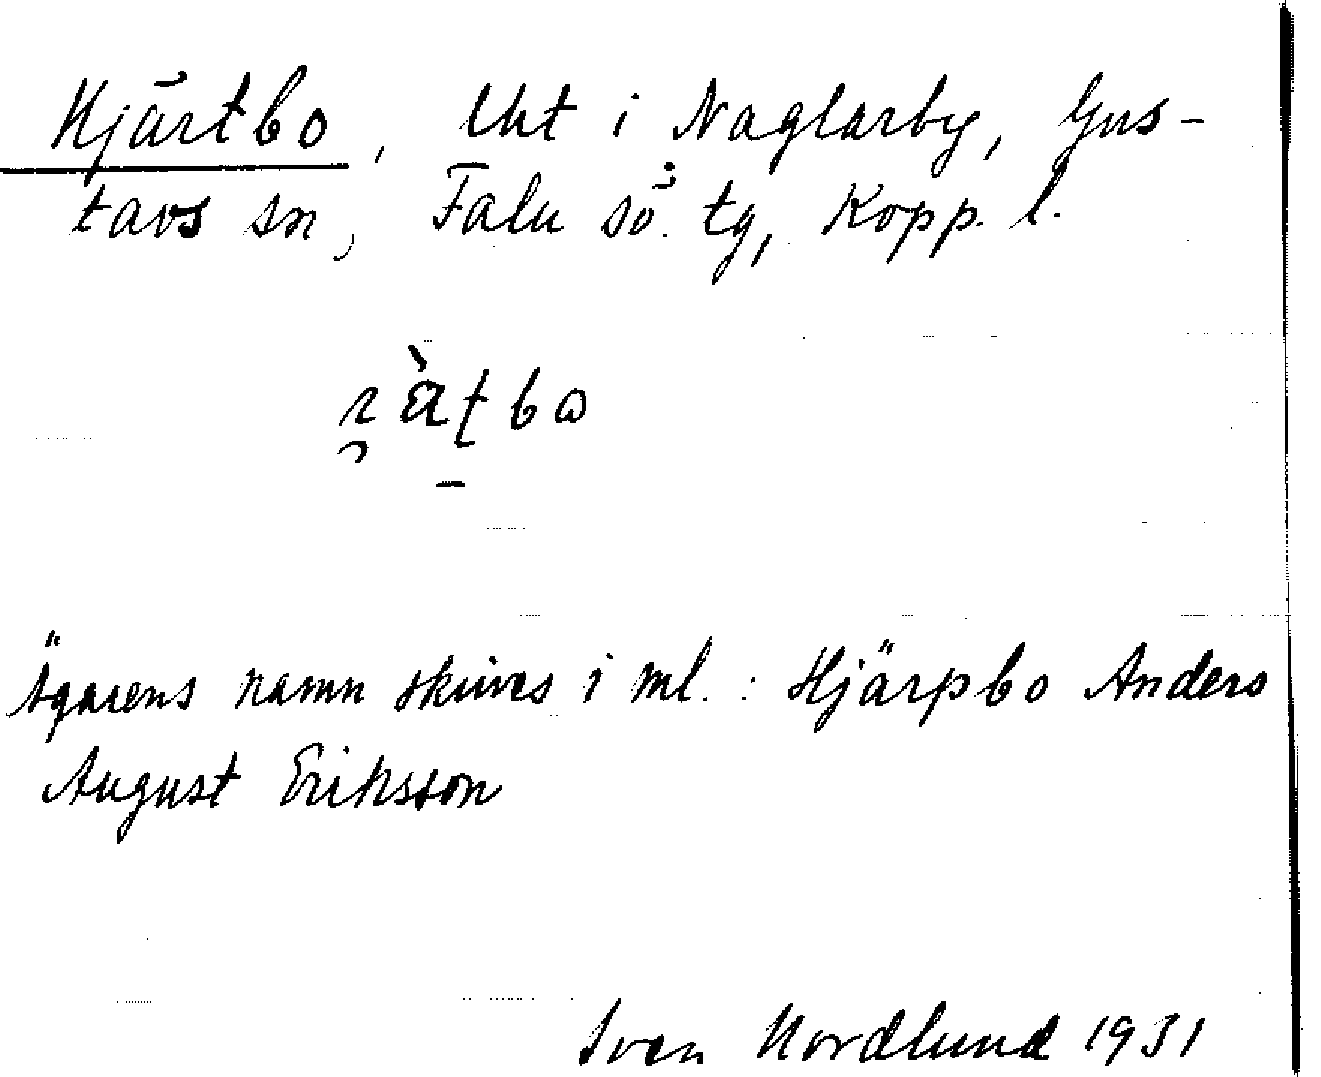 Hjärtbo, Uht i Naglarby, Gus-
tavs sn, Falu sö. tg, Kopp. l.
Ägarens namn skrives i ml.: Hjärpbo Anders
August Eriksson
Sven Nordlund 1931